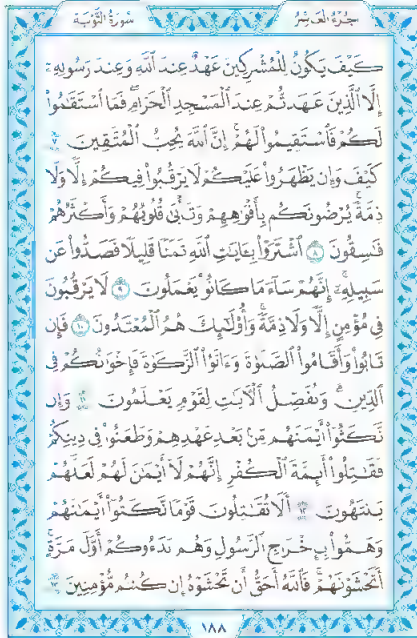 سُورَةُ التَّوْبَةِ
الجُزْءُ العَاشِرُ
كَيْفَ يَكُونُ لِلْمُشْرِكِينَ عَهْدٌ عِندَ ٱللَّهِ وَعِندَ رَسُولِهِۦٓ
إِلَّا ٱلَّذِينَ عَٰهَدتُّمْ عِندَ ٱلْمَسْجِدِ ٱلْحَرَامِ ۖ فَمَا ٱسْتَقَٰمُوا۟
لَكُمْ فَٱسْتَقِيمُوا۟ لَهُمْ ۚ إِنَّ ٱللَّهَ يُحِبُّ ٱلْمُتَّقِينَ ٧
كَيْفَ وَإِن يَظْهَرُوا۟ عَلَيْكُمْ لَا يَرْقُبُوا۟ فِيكُمْ إِلًّا وَلَا
ذِمَّةً ۚ يُرْضُونَكُم بِأَفْوَٰهِهِمْ وَتَأْبَىٰ قُلُوبُهُمْ وَأَكْثَرُهُمْ
فَٰسِقُونَ ٨ ٱشْتَرَوْا۟ بِـَٔايَٰتِ ٱللَّهِ ثَمَنًا قَلِيلًا فَصَدُّوا۟ عَن
سَبِيلِهِۦٓ ۚ إِنَّهُمْ سَآءَ مَا كَانُوا۟ يَعْمَلُونَ ٩ لَا يَرْقُبُونَ
فِى مُؤْمِنٍ إِلًّا وَلَا ذِمَّةً ۚ وَأُو۟لَٰٓئِكَ هُمُ ٱلْمُعْتَدُونَ ١٠ فَإِن
تَابُوا۟ وَأَقَامُوا۟ ٱلصَّلَوٰةَ وَءَاتَوُا۟ ٱلزَّكَوٰةَ فَإِخْوَٰنُكُمْ فِى
ٱلدِّينِ ۗ وَنُفَصِّلُ ٱلْـَٔايَٰتِ لِقَوْمٍ يَعْلَمُونَ ١١ وَإِن
نَّكَثُوٓا۟ أَيْمَٰنَهُم مِّنۢ بَعْدِ عَهْدِهِمْ وَطَعَنُوا۟ فِى دِينِكُمْ
فَقَٰتِلُوٓا۟ أَئِمَّةَ ٱلْكُفْرِ ۙ إِنَّهُمْ لَآ أَيْمَٰنَ لَهُمْ لَعَلَّهُمْ
يَنتَهُونَ ١٢ أَلَا تُقَٰتِلُونَ قَوْمًا نَّكَثُوٓا۟ أَيْمَٰنَهُمْ
وَهَمُّوا۟ بِإِخْرَاجِ ٱلرَّسُولِ وَهُم بَدَءُوكُمْ أَوَّلَ مَرَّةٍ ۚ
أَتَخْشَوْنَهُمْ ۚ فَٱللَّهُ أَحَقُّ أَن تَخْشَوْهُ إِن كُنتُم مُّؤْمِنِينَ ١٣
١٨٨